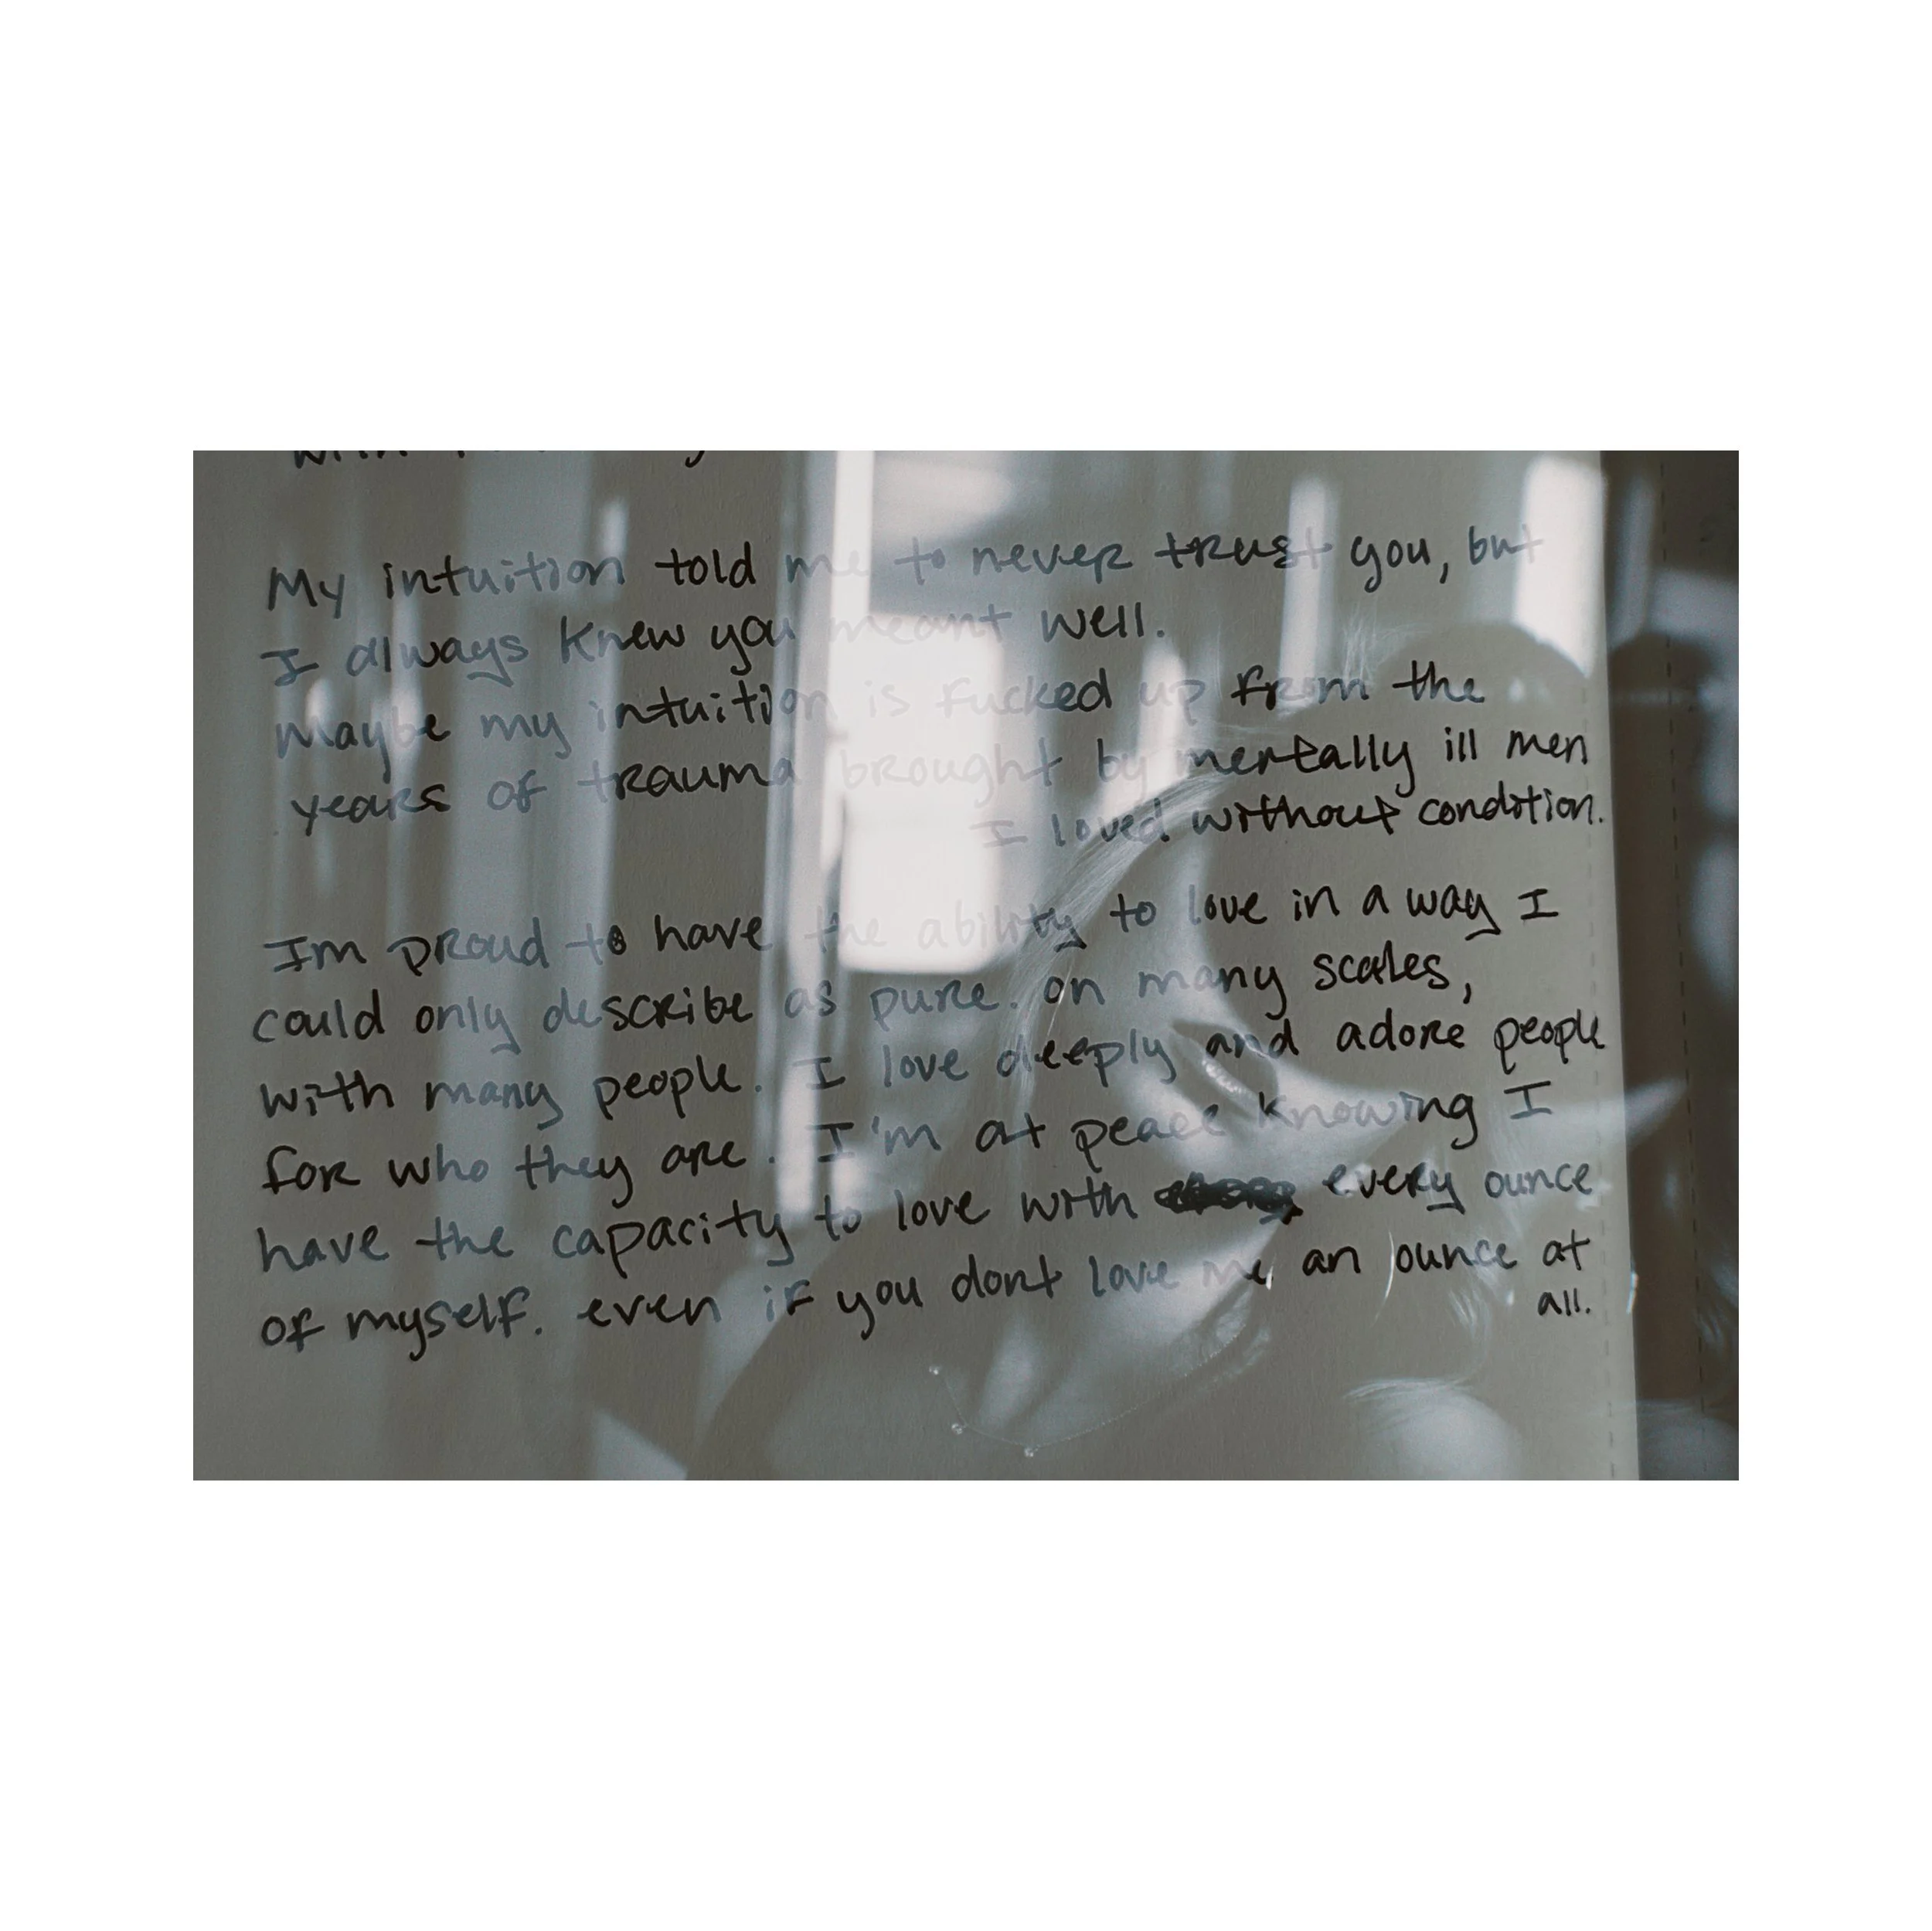 My intuition told me to never trust you, but
I always knew you meant well.
maybe my intuition is fucked up from the
years of trauma brought by mentally ill men
I loved without condition.
Im proud to have the ability to love in a way I
could only describe as pure. on many scales,
with many people. I love deeply and adore people
for who they are. I'm at peace knowing I
have the capacity to love with every ounce
of myself. even if you dont love me an ounce at
all.